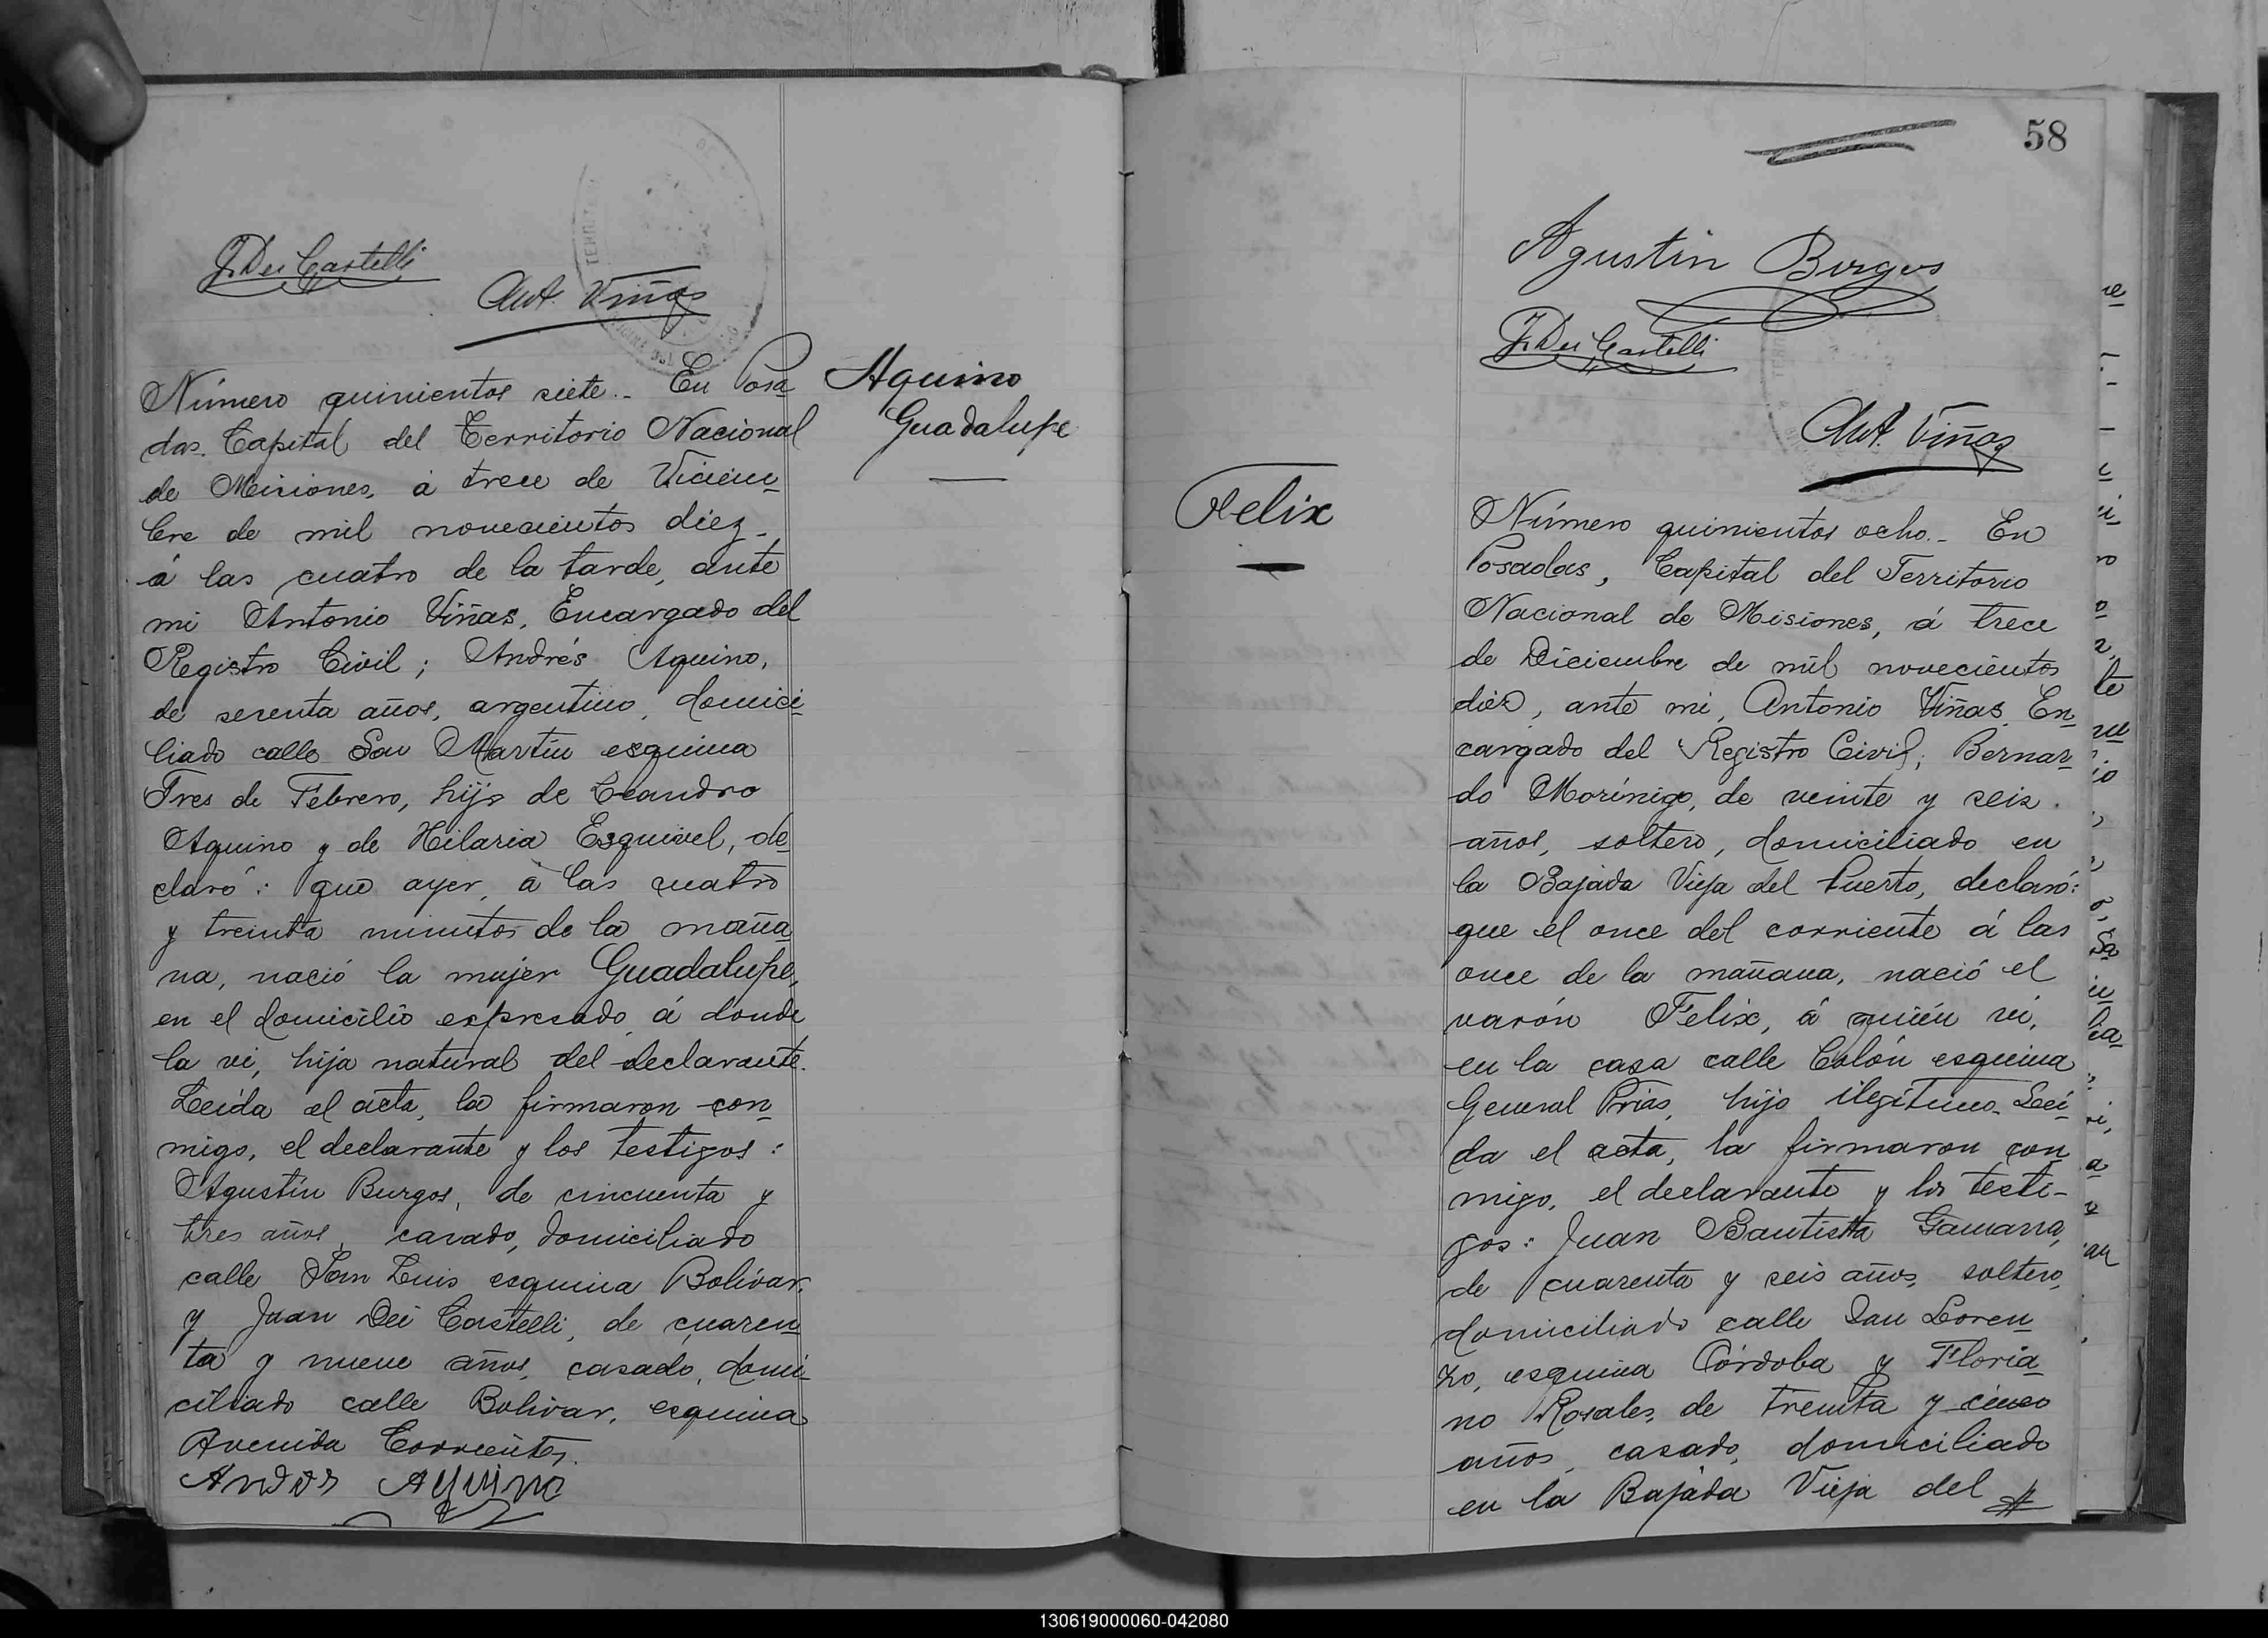 J. Dei Castelli
Ant. Viñas
Número quinientos siete.- En Posa
das, Capital del Territorio Nacional
de Misiones, á trece de Diciem
bre de mil novecientos diez,
á las cuatro de la tarde, ante
mi Antonio Viñas, Encargado del
Registro Civil; Andrés Aquino,
de sesenta años, argentino, domici
liado calle San Martin esquina
Tres de Febrero, hijo de Leandro
Aquino y de Hilaria Esquivel, de
claró: que ayer, á las cuatro
y treinta minutos de la maña
na, nació la mujer Guadalupe,
en el domicilio espresado á donde
la vi, hija natural del declarante.
Leida el acta, la firmaron con
migo, el declarante y los testigos:
Agustín Burgos, de cincuenta y
tres años, casado, domiciliado
calle San Luis esquina Bolívar,
y Juan Dei Castelli, de cuaren
ta y nueve años, casado, domi
ciliado calle Bolivar, esquina
Avenida Corrientes.
Andrs Aquino
Aquino
Guadalupe
58
Agustin Burgos
J. Dei Castelli
Ant. Viñas
Felix
Número quinientos ocho.- En
Posadas, Capital del Territorio
Nacional de Misiones, á trece
de Diciembre de mil novecientos
diez, ante mi, Antonio Viñas, En
cargado del Registro Civil; Bernar
do Morínigo, de veinte y seis
años, soltero, domiciliado en
la Bajada Vieja del Puerto, declaró:
que el once del corriente á las
once de la mañana, nació el
varón Felix, á quién vi,
en la casa calle Colón esquina
General Frías, hijo ilegítimo. Leí
da el acta, la firmaron con
migo, el declarante y los testi-
gos: Juan Bautista Gamarra,
de cuarenta y seis años, soltero,
domiciliado calle San Loren
zo, esquina Córdoba y Floria
no Rosales, de treinta y cinco
años, casado, domiciliado
en la Bajada Vieja del
130619000060-042080